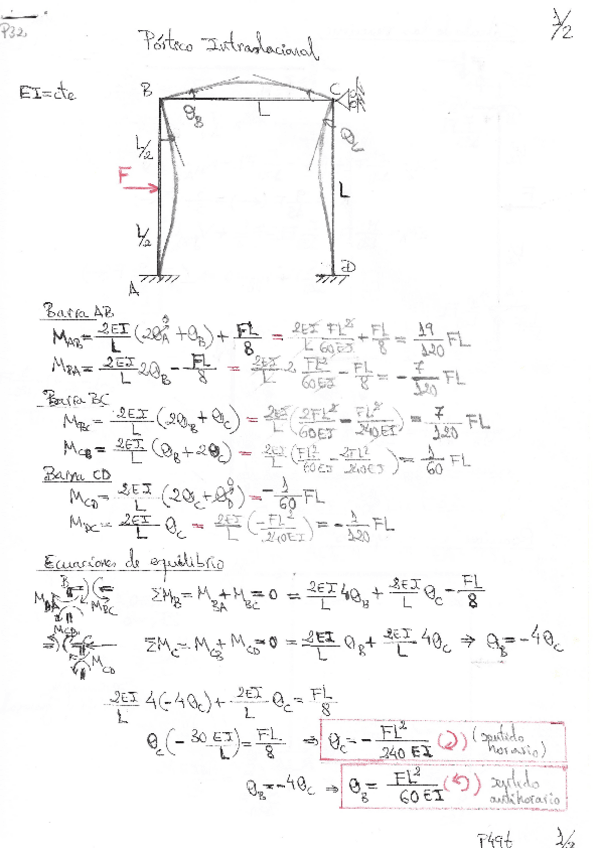 P32
1/2
Pórtico Intraslacional
EI=cte
B
C
θ_B
L
θ_C
L/2
F
L
L/2
A
D
Barra AB
M_AB = 2EI/L (2θ_A + θ_B) + FL/8 = 2EI/L FL²/60EI + FL/8 = 19/120 FL
M_BA = 2EI/L 2θ_B - FL/8 = 2EI/L 2 FL²/60EI - FL/8 = -7/120 FL
Barra BC
M_BC = 2EI/L (2θ_B + θ_C) = 2EI/L (2FL²/60EI - FL²/240EI) = 7/120 FL
M_CB = 2EI/L (θ_B + 2θ_C) = 2EI/L (FL²/60EI - 2FL²/240EI) = 1/60 FL
Barra CD
M_CD = 2EI/L (2θ_C + θ_D) = -1/60 FL
M_DC = 2EI/L θ_C = 2EI/L (-FL²/240EI) = -1/120 FL
Ecuaciones de equilibrio
B M_BA M_BC ΣM_B = M_BA + M_BC = 0 = 2EI/L 4θ_B + 2EI/L θ_C - FL/8
M_CB M_CD ΣM_C = M_CB + M_CD = 0 = 2EI/L θ_B + 2EI/L 4θ_C ⇒ θ_B = -4θ_C
2EI/L 4(-4θ_C) + 2EI/L θ_C = FL/8
θ_C (-30EI/L) = FL/8 ⇒ θ_C = -FL²/240EI (↻) (sentido horario)
θ_B = -4θ_C ⇒ θ_B = FL²/60EI (↺) sentido antihorario
P49t